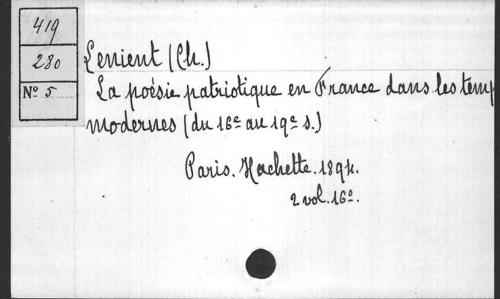 419
280
Nº 5
Lenient (Ch.)
La poésie patriotique en France dans les temp
modernes (du 16e au 19e s.)
Paris. Hachette. 1894.
2 vol. 16º.